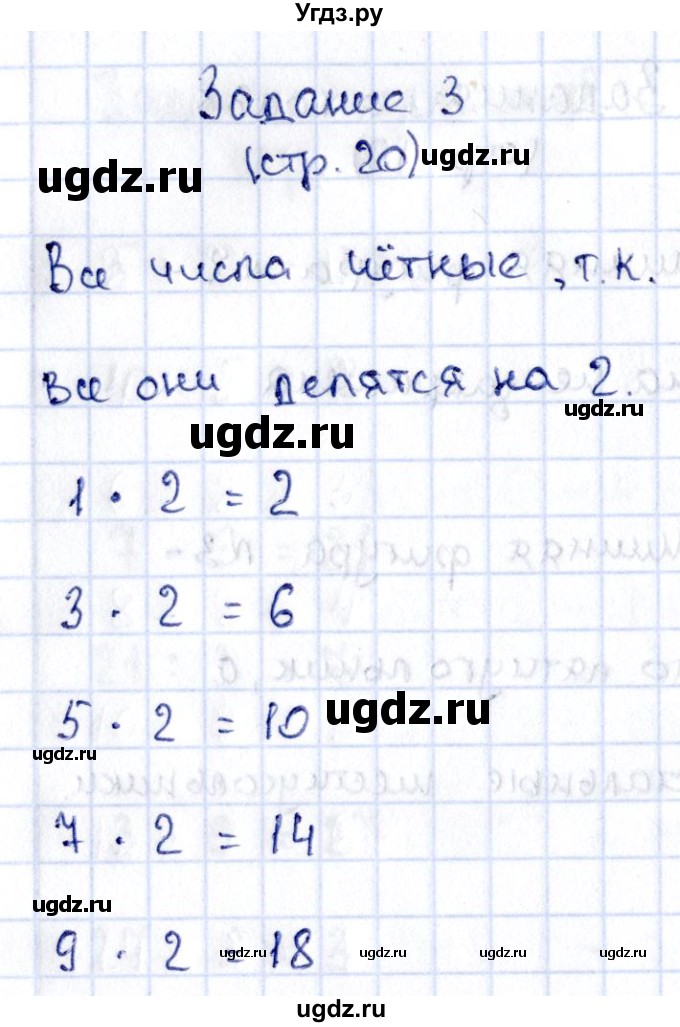 Угдз.ру
Задание 3
(стр. 20) ugdz.ru
ugdz.ru
Все числа чётные, т.к.
все они делятся на 2.
ugdz.ru
ugdz.ru
1 · 2 = 2
3 · 2 = 6
5 · 2 = 10 ugdz.ru
ugdz.ru
7 · 2 = 14
ugdz.ru
9 · 2 = 18 ugdz.ru ugdz.ru ugdz.ru ugdz.ru
ugdz.ru